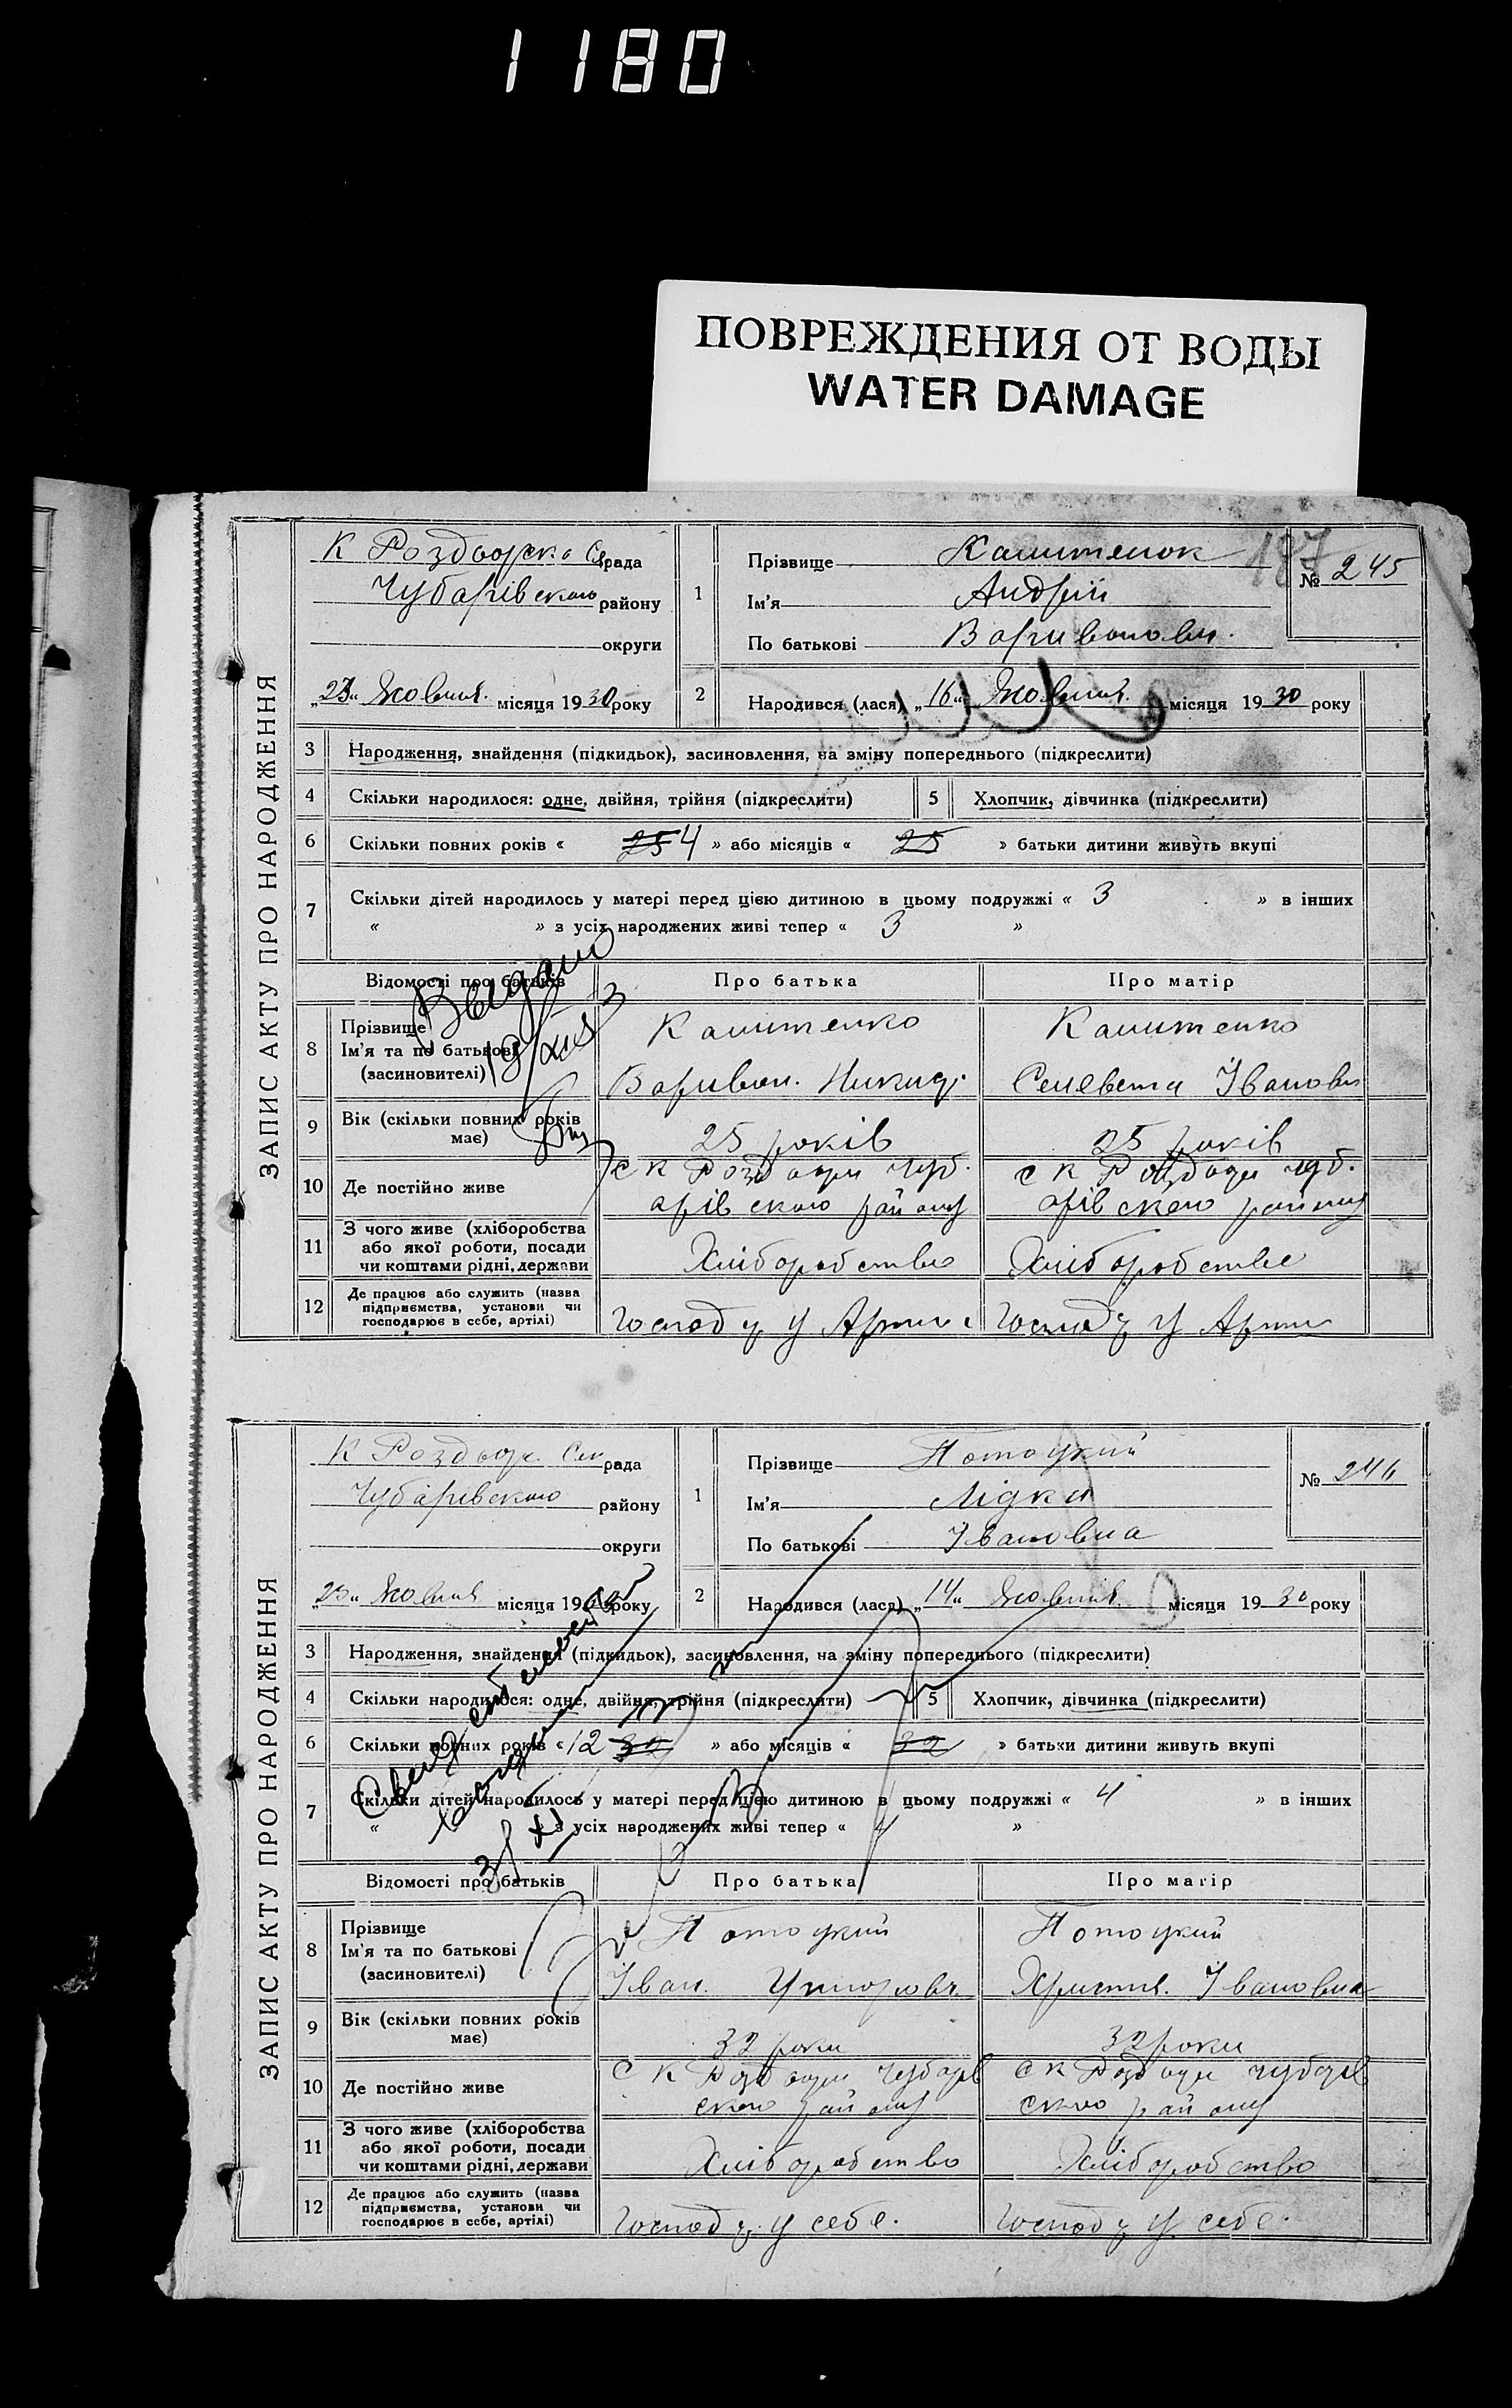 1180
ПОВРЕЖДЕНИЯ ОТ ВОДЫ
WATER DAMAGE
ЗАПИС АКТУ ПРО НАРОДЖЕННЯ
К Роздорска рада
Чубарівского району
округи
„23“ Жовтня місяця 1930 року
187
№ 245
1 Прізвище Калитенок
Ім'я Андрій
По батькові
2 Народився (лася) „16“ Жовтня. місяця 1930 року
3 Народження, знайдення (підкидьок), засиновлення, на зміну попереднього (підкреслити)
4 Скільки народилося: одне, двійня, трійня (підкреслити)
5 Хлопчик, дівчинка (підкреслити)
6 Скільки повних років « 25 4 » або місяців « 25 » батьки дитини живуть вкупі
7 Скільки дітей народилось у матері перед цією дитиною в цьому подружжі « 3 » в інших
« » з усіх народжених живі тепер « 3 »
Відомості про батьків Про батька Про матір
8 Прізвище
Ім'я та по батькові
(засновителі)
Калитенко
Калитенко
Івановн
9 Вік (скільки повних років має)
25 років
25 років
10 Де постійно живе
арівского району
арівского району
11 З чого живе (хліборобства
або якої роботи, посади
чи коштами рідні, держави
Хліборобство
Хліборобство
12 Де працює або служить (назва
підприємства, установи чи
господарює в себе, артілі)
Господ у Артил
Господ у Артил
Видано
ЗАПИС АКТУ ПРО НАРОДЖЕННЯ
К Роздор. Сел рада
Чубарівского району
округи
„23“ Жовтня місяця 19 року
№ 246
1 Прізвище Потоцкий
Ім'я Лідка
По батькові Івановна
2 Народився (лася) „14“ Жовтня. місяця 1930 року
3 Народження, знайдення (підкидьок), засиновлення, на зміну попереднього (підкреслити)
4 Скільки народилося: одне, двійня, трійня (підкреслити)
5 Хлопчик, дівчинка (підкреслити)
6 Скільки повних років « 12 32 » або місяців « 32 » батьки дитини живуть вкупі
7 Скільки дітей народилось у матері перед цією дитиною в цьому подружжі « 4 » в інших
« » з усіх народжених живі тепер « 4 »
Відомості про батьків Про батька Про матір
8 Прізвище
Ім'я та по батькові
(засиновителі)
Потоцкий
Іван.
Потоцкий
Христин. Івановна
9 Вік (скільки повних років має)
32 роки
32 роки
10 Де постійно живе
ского району
ского району
11 З чого живе (хліборобства
або якої роботи, посади
чи коштами рідні, держави
Хліборобство
Хліборобство
12 Де працює або служить (назва
підприємства, установи чи
господарює в себе, артілі)
Господ у себе.
Господ у себе.